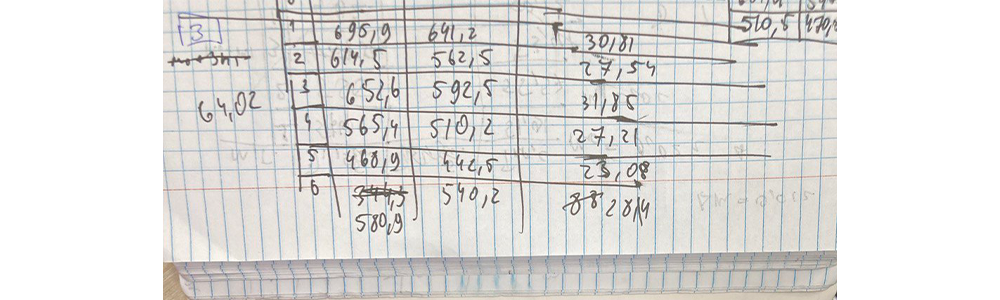 3
1 695,9 641,2 30,81
2 614,5 562,5 27,54
3 652,6 592,5 31,85
64,02
4 565,4 510,2 27,21
5 468,9 442,5 23,08
6 540,2
580,9
510,5